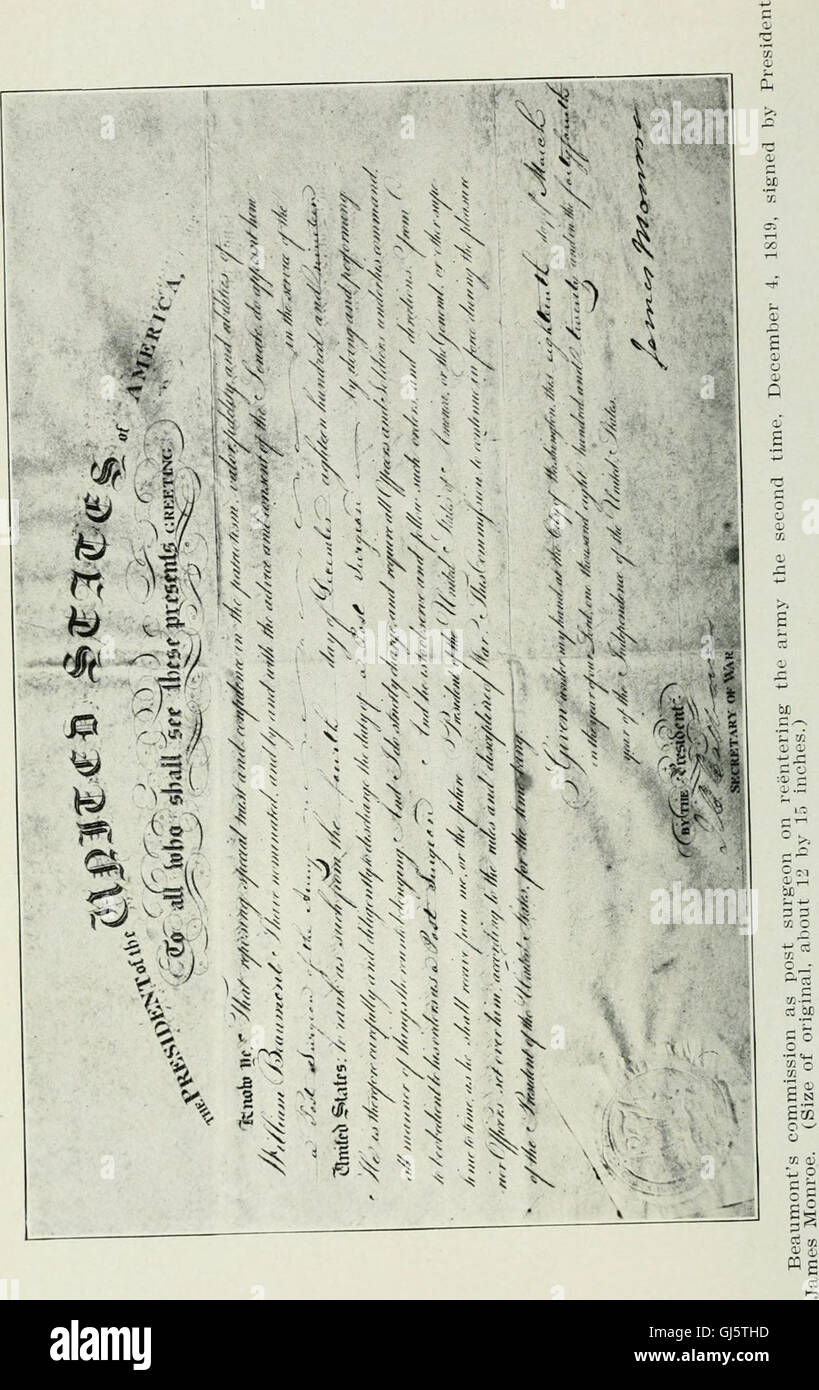 THE PRESIDENT of the UNITED STATES of AMERICA,
To all who shall see these presents GREETING:
Know Ye, That reposing special trust and confidence in the patriotism, valor, fidelity, and abilities of
William Beaumont I have nominated, and by and with the advice and consent of the Senate, do appoint him
a Post Surgeon of the Army in the service of the
United States: to rank as such from the fourth day of December eighteen hundred and nineteen
He is therefore carefully and diligently to discharge the duty of a Post Surgeon by doing and performing
all manner of things thereunto belonging. And I do strictly charge, and require all Officers and Soldiers under his command,
to be obedient to his orders as a Post Surgeon. And he is to observe and follow such orders, and directions, from
time to time, as he shall receive from me, or the future President of the United States of America, or the General, or other supe
rior Officers set over him, according to the rules and discipline of War. This Commission to continue in force during the pleasure
of the President of the United States, for the time being.
Given under my hand at the City of Washington, this eighteenth day of March
in the year of our Lord, one thousand eight hundred and twenty and in the forty fourth
year of the Independence of the United States.
James Monroe
BY THE President:
SECRETARY OF WAR
Beaumont's commission as post surgeon on reëntering the army the second time, December 4, 1819, signed by President
James Monroe. (Size of original, about 12 by 15 inches.)
alamy
alamy
Image ID: GJ5THD
www.alamy.com